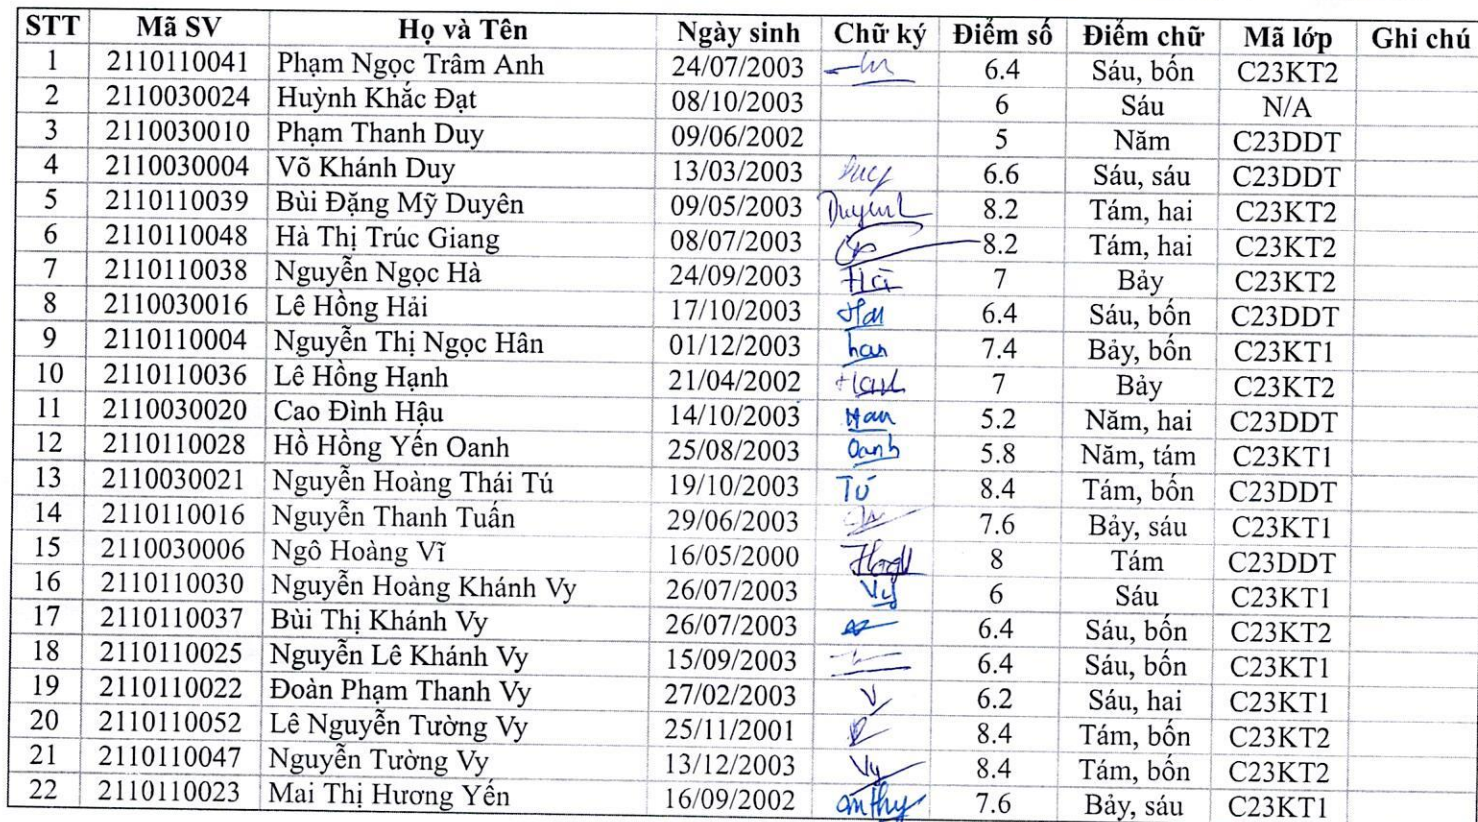 STT Mã SV Họ và Tên Ngày sinh Chữ ký Điểm số Điểm chữ Mã lớp Ghi chú
1 2110110041 Phạm Ngọc Trâm Anh 24/07/2003 6.4 Sáu, bốn C23KT2
2 2110030024 Huỳnh Khắc Đạt 08/10/2003 6 Sáu N/A
3 2110030010 Phạm Thanh Duy 09/06/2002 5 Năm C23DDT
4 2110030004 Võ Khánh Duy 13/03/2003 Duy 6.6 Sáu, sáu C23DDT
5 2110110039 Bùi Đặng Mỹ Duyên 09/05/2003 Duyên 8.2 Tám, hai C23KT2
6 2110110048 Hà Thị Trúc Giang 08/07/2003 8.2 Tám, hai C23KT2
7 2110110038 Nguyễn Ngọc Hà 24/09/2003 Hà 7 Bảy C23KT2
8 2110030016 Lê Hồng Hải 17/10/2003 6.4 Sáu, bốn C23DDT
9 2110110004 Nguyễn Thị Ngọc Hân 01/12/2003 han 7.4 Bảy, bốn C23KT1
10 2110110036 Lê Hồng Hạnh 21/04/2002 7 Bảy C23KT2
11 2110030020 Cao Đình Hậu 14/10/2003 5.2 Năm, hai C23DDT
12 2110110028 Hồ Hồng Yến Oanh 25/08/2003 Oanh 5.8 Năm, tám C23KT1
13 2110030021 Nguyễn Hoàng Thái Tú 19/10/2003 Tú 8.4 Tám, bốn C23DDT
14 2110110016 Nguyễn Thanh Tuấn 29/06/2003 7.6 Bảy, sáu C23KT1
15 2110030006 Ngô Hoàng Vĩ 16/05/2000 8 Tám C23DDT
16 2110110030 Nguyễn Hoàng Khánh Vy 26/07/2003 Vy 6 Sáu C23KT1
17 2110110037 Bùi Thị Khánh Vy 26/07/2003 6.4 Sáu, bốn C23KT2
18 2110110025 Nguyễn Lê Khánh Vy 15/09/2003 6.4 Sáu, bốn C23KT1
19 2110110022 Đoàn Phạm Thanh Vy 27/02/2003 6.2 Sáu, hai C23KT1
20 2110110052 Lê Nguyễn Tường Vy 25/11/2001 8.4 Tám, bốn C23KT2
21 2110110047 Nguyễn Tường Vy 13/12/2003 Vy 8.4 Tám, bốn C23KT2
22 2110110023 Mai Thị Hương Yến 16/09/2002 7.6 Bảy, sáu C23KT1